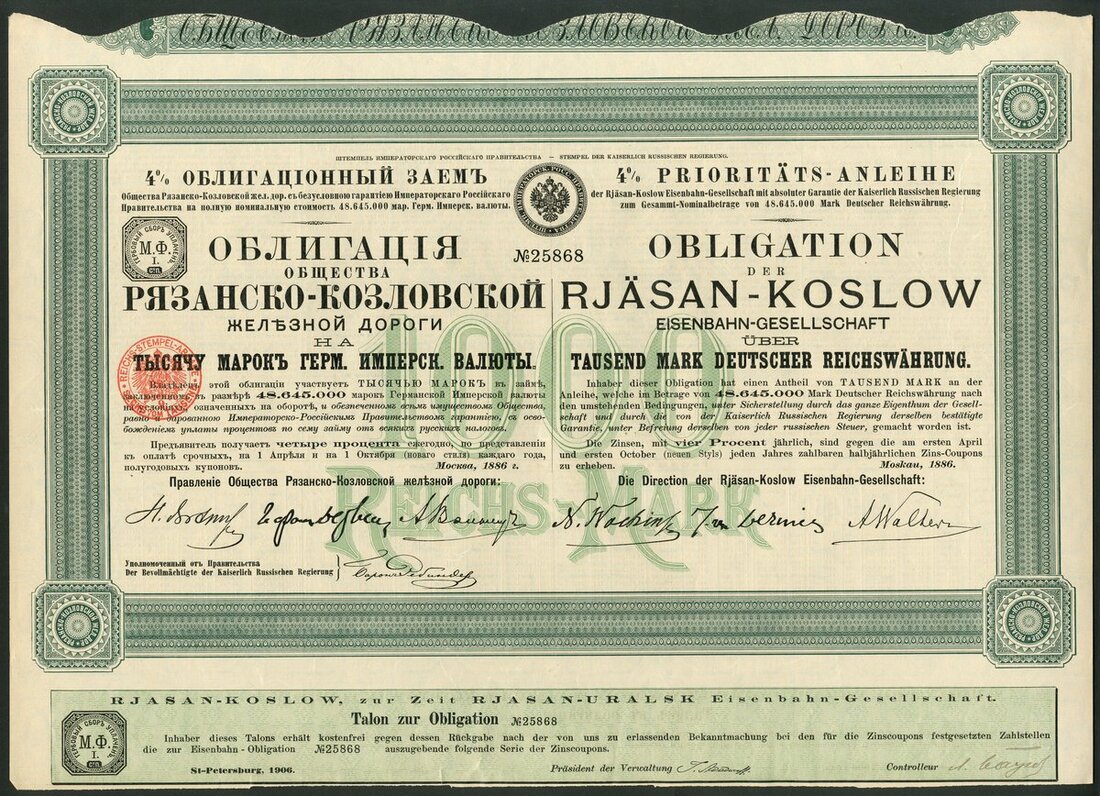 ШТЕМПЕЛЬ ИМПЕРАТОРСКАГО РОССІЙСКАГО ПРАВИТЕЛЬСТВА — STEMPEL DER KAISERLICH RUSSISCHEN REGIERUNG.
4% ОБЛИГАЦІОННЫЙ ЗАЕМЪ
Общества Рязанско-Козловской жел. дор. съ безусловною гарантіею Императорскаго Россійскаго
Правительства на полную номинальную стоимость 48.645.000 мар. Герм. Имперск. валюты.
М.Ф.
I.
СП.
ОБЛИГАЦІЯ
ОБЩЕСТВА
РЯЗАНСКО-КОЗЛОВСКОЙ
ЖЕЛѢЗНОЙ ДОРОГИ
НА
ТЫСЯЧУ МАРОКЪ ГЕРМ. ИМПЕРСК. ВАЛЮТЫ.
Владѣлецъ этой облигаціи участвуетъ ТЫСЯЧЬЮ МАРОКЪ въ займѣ,
заключенномъ въ размѣрѣ 48.645.000 марокъ Германской Имперской валюты
на условіяхъ означенныхъ на оборотѣ, и обезпеченномъ всѣмъ имуществомъ Общества,
равно и дарованною Императорско-Россійскимъ Правительствомъ гарантіею, съ осво-
божденіемъ уплаты процентовъ по сему займу отъ всякихъ русскихъ налоговъ.
Предъявитель получаетъ четыре процента ежегодно, по представленіи
къ оплатѣ срочныхъ, на 1 Апрѣля и на 1 Октября (новаго стиля) каждаго года,
полугодовыхъ купоновъ.
Москва, 1886 г.
Правленіе Общества Рязанско-Козловской желѣзной дороги:
№25868
4% PRIORITÄTS-ANLEIHE
der Rjäsan-Koslow Eisenbahn-Gesellschaft mit absoluter Garantie der Kaiserlich Russischen Regierung
zum Gesammt-Nominalbetrage von 48.645.000 Mark Deutscher Reichswährung.
OBLIGATION
DER
RJÄSAN-KOSLOW
EISENBAHN-GESELLSCHAFT
ÜBER
TAUSEND MARK DEUTSCHER REICHSWÄHRUNG.
Inhaber dieser Obligation hat einen Antheil von TAUSEND MARK an der
Anleihe, welche im Betrage von 48.645.000 Mark Deutscher Reichswährung nach
den umstehenden Bedingungen, unter Sicherstellung durch das ganze Eigenthum der Gesell-
schaft und durch die von der Kaiserlich Russischen Regierung derselben bestätigte
Garantie, unter Befreiung derselben von jeder russischen Steuer, gemacht worden ist.
Die Zinsen, mit vier Procent jährlich, sind gegen die am ersten April
und ersten October (neuen Styls) jeden Jahres zahlbaren halbjährlichen Zins-Coupons
zu erheben.
Moskau, 1886.
Die Direction der Rjäsan-Koslow Eisenbahn-Gesellschaft:
1000
REICHS-MARK
Уполномоченный отъ Правительства
Der Bevollmächtigte der Kaiserlich Russischen Regierung
RJASAN-KOSLOW, zur Zeit RJASAN-URALSK Eisenbahn-Gesellschaft.
М.Ф.
I.
СП.
Talon zur Obligation №25868
Inhaber dieses Talons erhält kostenfrei gegen dessen Rückgabe nach der von uns zu erlassenden Bekanntmachung bei den für die Zinscoupons festgesetzten Zahlstellen
die zur Eisenbahn-Obligation №25868 auszugebende folgende Serie der Zinscoupons.
St-Petersburg, 1906.
Präsident der Verwaltung
Controlleur